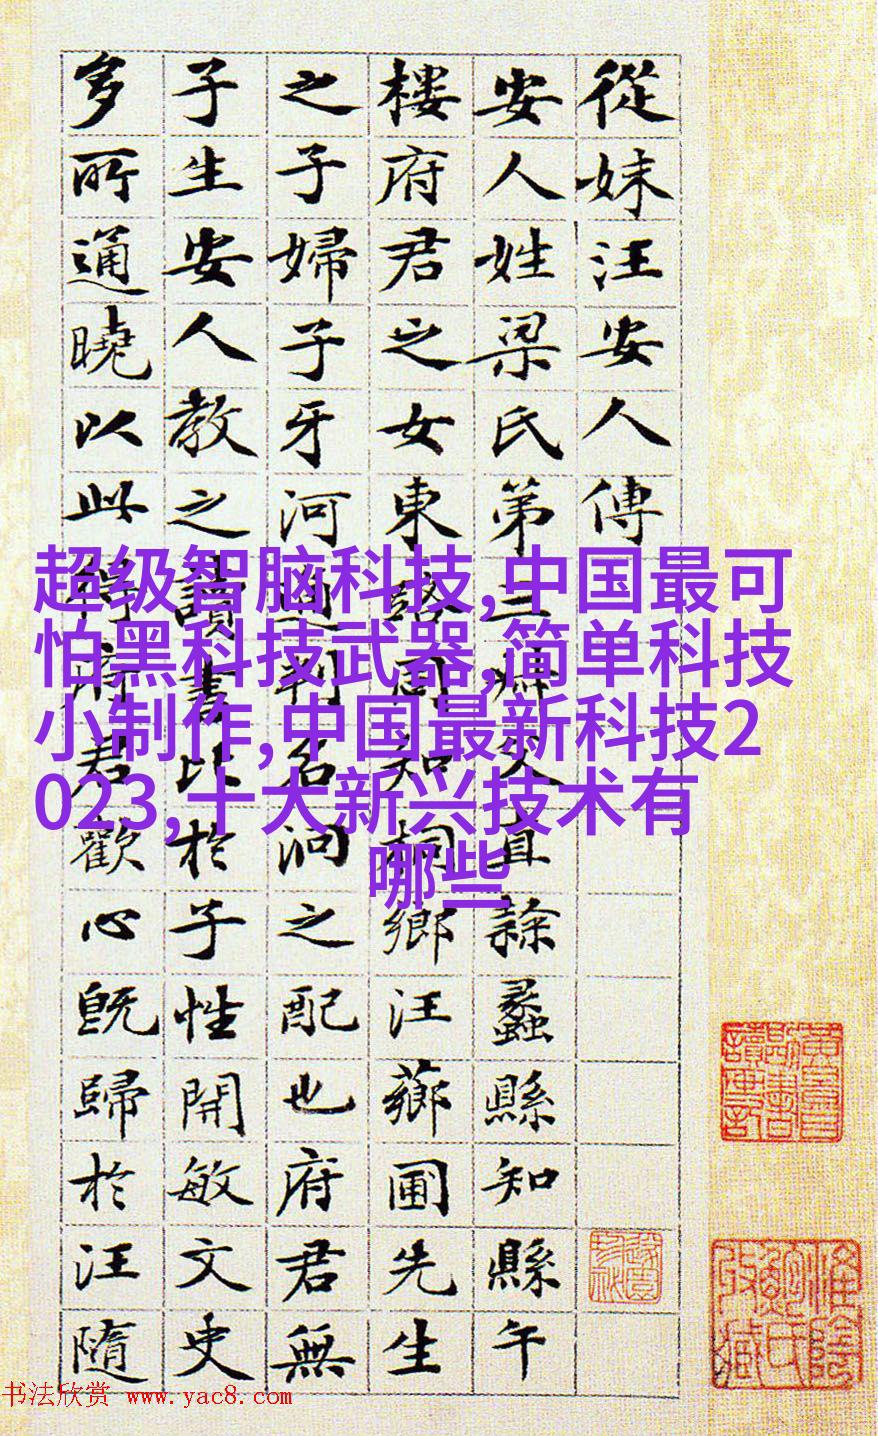 從妹汪安人傳
安人姓梁氏第三叔父直隸蠡縣知縣午
樓府君之女東路同知桐鄉汪薌圃先生
之子婦子牙河通判名泂之配也府君無
子生安人教之讀書比於子性開敏文史
多所通曉以此得府君歡心既歸於汪隨
超级智脑科技,中国最可
怕黑科技武器,简单科技
小制作,中国最新科技2
023,十大新兴技术有
哪些
书法欣赏 www.yac8.com